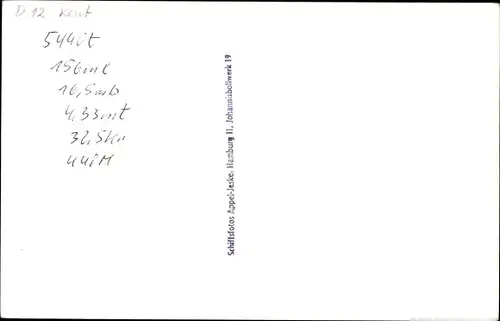 D 12 Kent
5440t
156ml
16,5mb
4,33mt
32,5kn
44iM
Schiffsfotos Appel-Jeske, Hamburg 11, Johannisbollwerk 19